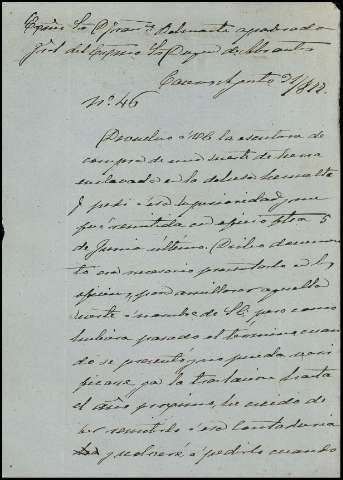 Excmo Sr Dn Fran.co Belmonte apoderado
gral del Excmo Sr Duque de Abrantes
Agosto 31/1882
Nº 46
Devuelvo á VE la escritura de
compra de una suerte de tierra
enclavada en la dehesa
q pedi á esa superioridad, y me
fué remitida en oficio fcha 5
de Junio último. Dicho documen
to era necesario presentarlo en la
oficina, para amillarar aquella
suerte á nombre de SE; pero como
hubiera pasado el término cuan
do se presentó, y no pueda veri
ficarse ya la traslacion hasta
el año proximo, he creido de
ber remitirlo á esa Contaduria
y volveré á pedirlo cuando